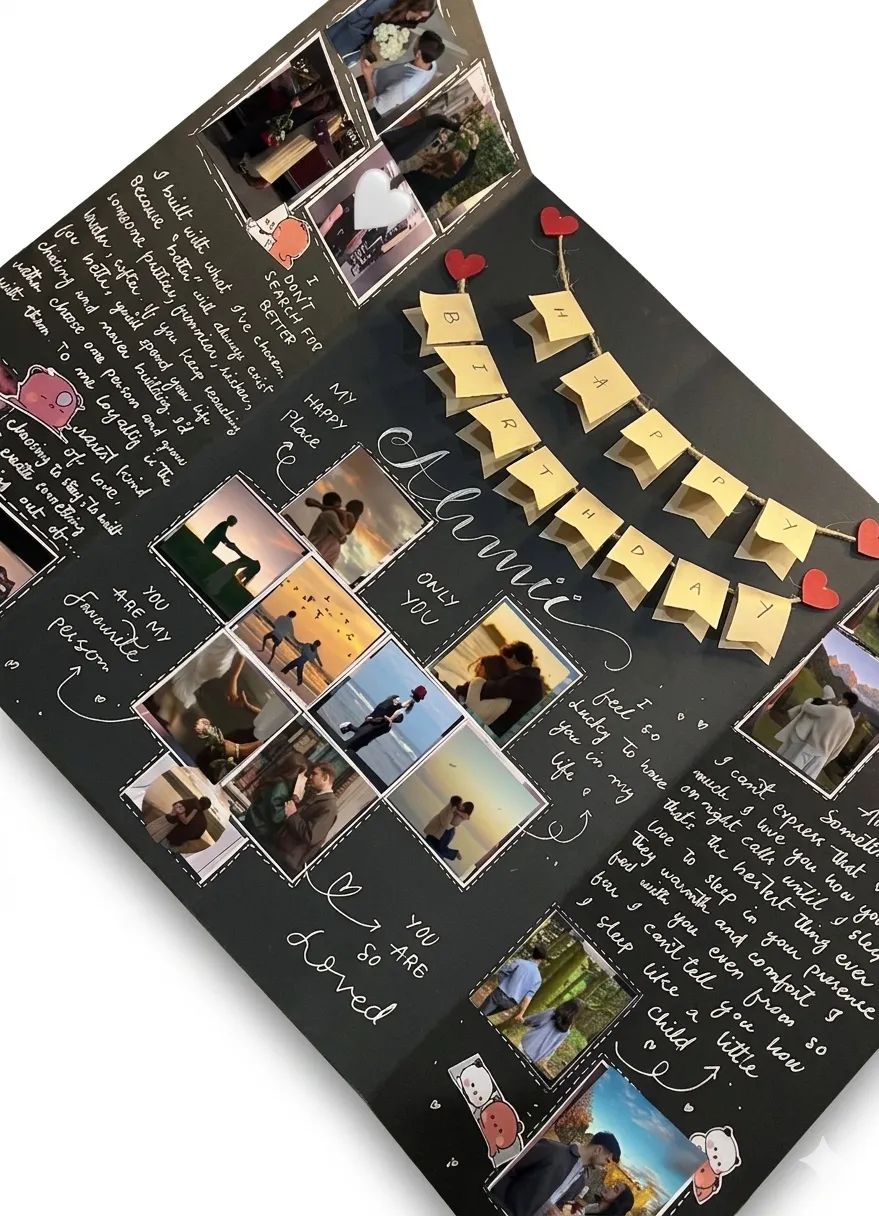 I
DON'T
SEARCH FOR
BETTER
I built with what I've chosen
Because "better" will always exist
someone prettier, funnier, richer,
kinder, softer. If you keep searching
for better, you'll spend your life
chasing and never building. I'd
rather choose one person and grow
with them. To me loyalty is the
rarest kind
of love,
choosing to stay, to built
create something
out of...
HAPPY
BIRTHDAY
MY
HAPPY
Place
Ahmii
ONLY
YOU
YOU
ARE MY
Favourite
person
I
feel so
lucky to have
you in my
life
YOU
ARE
SO
Loved
I can't express that
much I love you how you
on night calls until I sleep
that's the bestest thing ever
love to sleep in your presence
They warmth and comfort I
feel with you even from so
far I can't tell you how
I sleep like a little
child